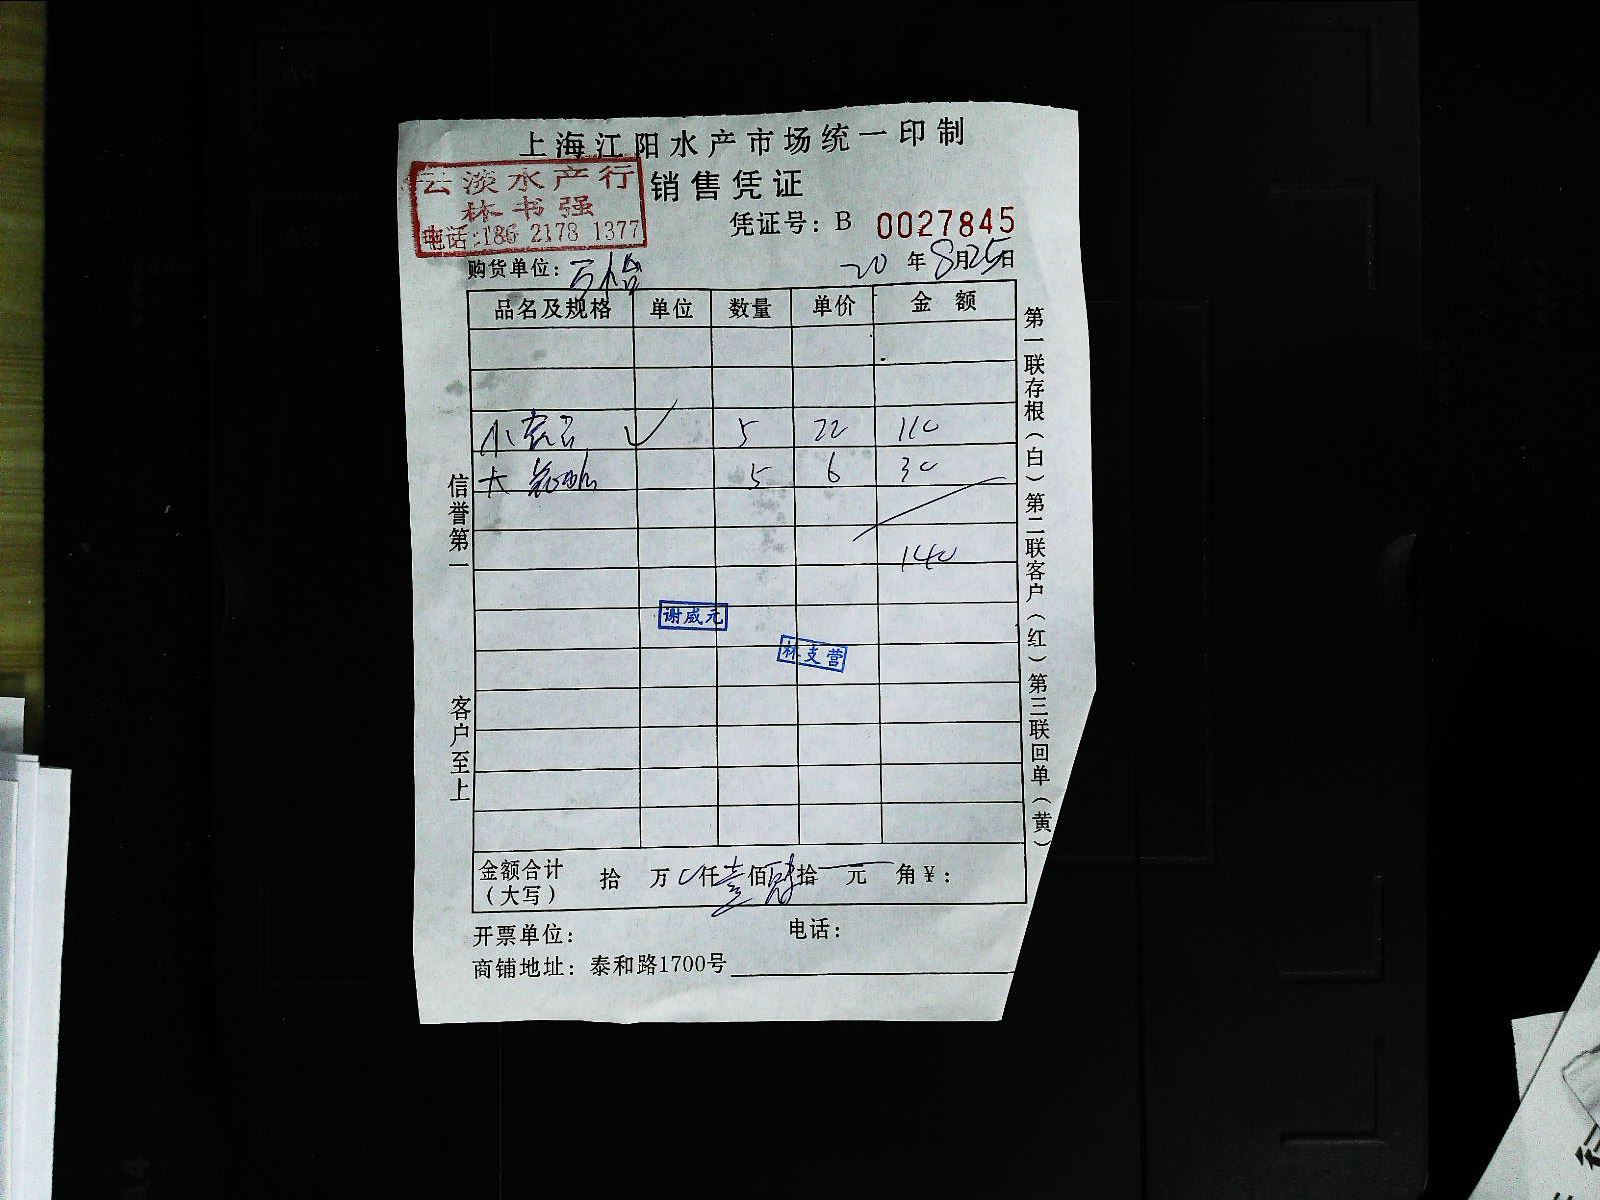 上海江阳水产市场统一印制
云淡水产行
林书强
电话:186 2178 1377
销售凭证
凭证号: B 0027845
购货单位: 万怡
20 年 8月25日
品名及规格 单位 数量 单价 金额
小 5 22 110
大 5 6 30
140
谢威元
林支营
信誉第一
客户至上
第一联存根(白)第二联客户(红)第三联回单(黄)
金额合计(大写) 拾 万 仟壹佰肆拾 元 角¥:
开票单位: 电话:
商铺地址: 泰和路1700号